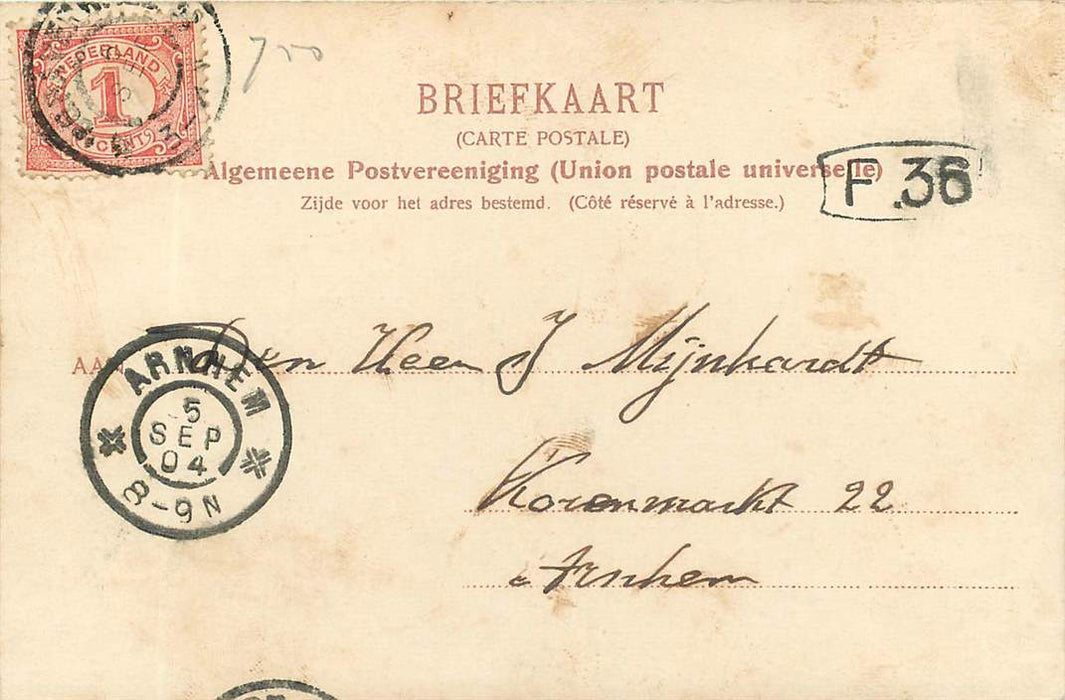 NEDERLAND
1
CENT
750
BRIEFKAART
(CARTE POSTALE)
Algemeene Postvereeniging (Union postale universelle)
Zijde voor het adres bestemd. (Côté réservé à l'adresse.)
F.36
AAN
Den Heer J Mijnhardt
ARNHEM
5
SEP
04
8-9N
Korenmarkt 22
Arnhem